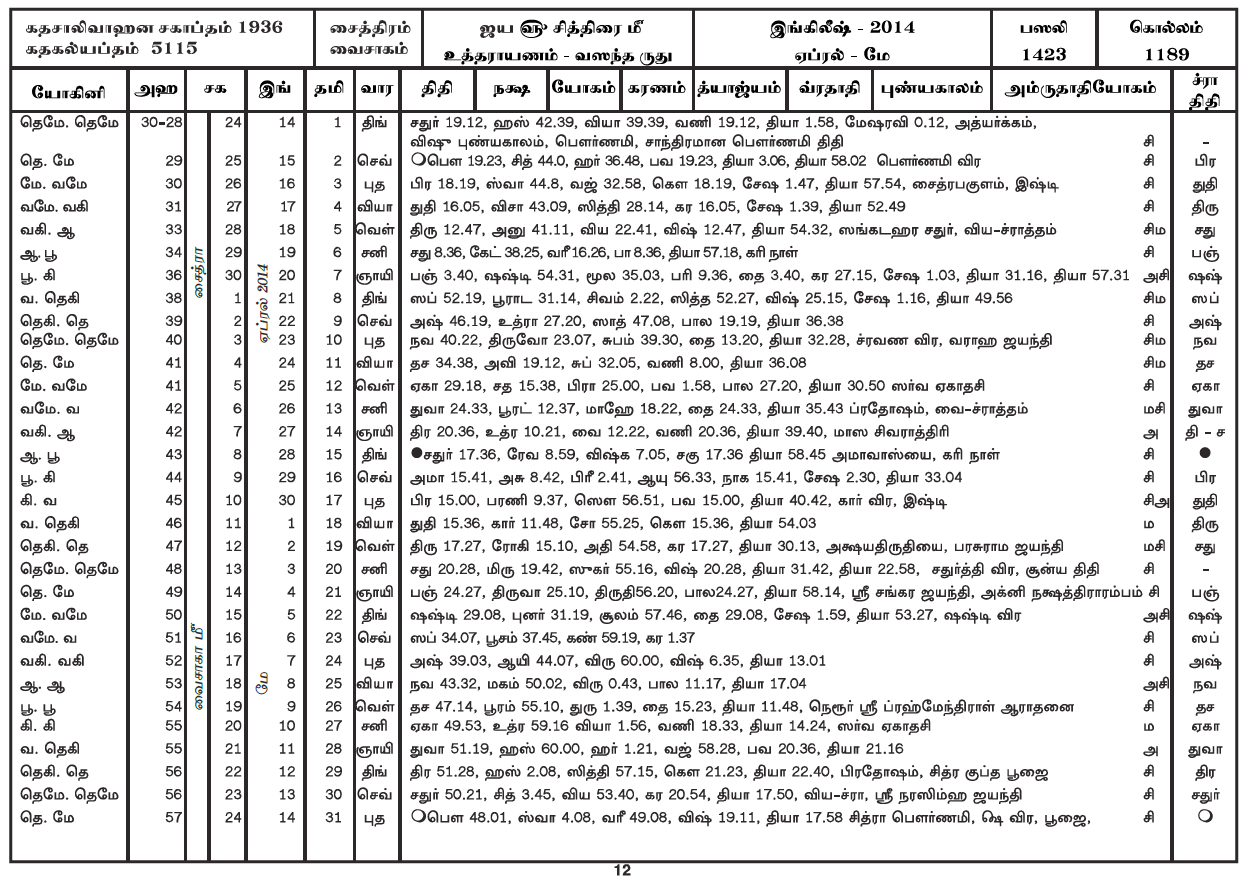 கதசாலிவாஹன சகாப்தம் 1936 சைத்திரம் ஜய ௵ சித்திரை மீ இங்கிலீஷ் - 2014 பஸலி கொல்லம்
கதகல்யப்தம் 5115 வைசாகம் உத்தராயணம் - வஸந்த ருது ஏப்ரல் - மே 1423 1189
யோகினி அஹ சக இங் தமி வார திதி நக்ஷ யோகம் கரணம் த்யாஜ்யம் வ்ரதாதி புண்யகாலம் அம்ருதாதியோகம் ச்ரா திதி
தெமே. தெமே 30-28 24 14 1 திங் சதுர் 19.12, ஹஸ் 42.39, வியா 39.39, வணி 19.12, தியா 1.58, மேஷரவி 0.12, அத்யர்க்கம்,
விஷு புண்யகாலம், பௌர்ணமி, சாந்திரமான பௌர்ணமி திதி சி -
தெ. மே 29 25 15 2 செவ் ❍பௌ 19.23, சித் 44.0, ஹர் 36.48, பவ 19.23, தியா 3.06, தியா 58.02 பௌர்ணமி விர சி பிர
மே. வமே 30 26 16 3 புத பிர 18.19, ஸ்வா 44.8, வஜ் 32.58, கௌ 18.19, சேஷ 1.47, தியா 57.54, சைத்ரபகுளம், இஷ்டி சி துதி
வமே. வகி 31 27 17 4 வியா துதி 16.05, விசா 43.09, ஸித்தி 28.14, கர 16.05, சேஷ 1.39, தியா 52.49 சி திரு
வகி. ஆ 33 28 18 5 வெள் திரு 12.47, அனு 41.11, விய 22.41, விஷ் 12.47, தியா 54.32, ஸங்கடஹர சதுர், விய-ச்ராத்தம் சிம சது
ஆ. பூ 34 சைத்ரா 29 19 6 சனி சது 8.36, கேட் 38.25, வரீ 16.26, பா 8.36, தியா 57.18, கரி நாள் சி பஞ்
பூ. கி 36 30 ஏப்ரல் 2014 20 7 ஞாயி பஞ் 3.40, ஷஷ்டி 54.31, மூல 35.03, பரி 9.36, தை 3.40, கர 27.15, சேஷ 1.03, தியா 31.16, தியா 57.31 அசி ஷஷ்
வ. தெகி 38 1 21 8 திங் ஸப் 52.19, பூராட 31.14, சிவம் 2.22, ஸித்த 52.27, விஷ் 25.15, சேஷ 1.16, தியா 49.56 சிம ஸப்
தெகி. தெ 39 2 22 9 செவ் அஷ் 46.19, உத்ரா 27.20, ஸாத் 47.08, பால 19.19, தியா 36.38 சி அஷ்
தெமே. தெமே 40 3 23 10 புத நவ 40.22, திருவோ 23.07, சுபம் 39.30, தை 13.20, தியா 32.28, ச்ரவண விர, வராஹ ஜயந்தி சிம நவ
தெ. மே 41 4 24 11 வியா தச 34.38, அவி 19.12, சுப் 32.05, வணி 8.00, தியா 36.08 சிம தச
மே. வமே 41 5 25 12 வெள் ஏகா 29.18, சத 15.38, பிரா 25.00, பவ 1.58, பால 27.20, தியா 30.50 ஸர்வ ஏகாதசி சி ஏகா
வமே. வ 42 6 26 13 சனி துவா 24.33, பூரட் 12.37, மாஹே 18.22, தை 24.33, தியா 35.43 ப்ரதோஷம், வை-ச்ராத்தம் மசி துவா
வகி. ஆ 42 7 27 14 ஞாயி திர 20.36, உத்ர 10.21, வை 12.22, வணி 20.36, தியா 39.40, மாஸ சிவராத்திரி அ தி - ச
ஆ. பூ 43 8 28 15 திங் ●சதுர் 17.36, ரேவ 8.59, விஷ்க 7.05, சகு 17.36 தியா 58.45 அமாவாஸ்யை, கரி நாள் சி ●
பூ. கி 44 9 29 16 செவ் அமா 15.41, அசு 8.42, பிரீ 2.41, ஆயு 56.33, நாக 15.41, சேஷ 2.30, தியா 33.04 சி பிர
கி. வ 45 10 30 17 புத பிர 15.00, பரணி 9.37, ஸௌ 56.51, பவ 15.00, தியா 40.42, கார் விர, இஷ்டி சிஅ துதி
வ. தெகி 46 11 1 18 வியா துதி 15.36, கார் 11.48, சோ 55.25, கௌ 15.36, தியா 54.03 ம திரு
தெகி. தெ 47 12 2 19 வெள் திரு 17.27, ரோகி 15.10, அதி 54.58, கர 17.27, தியா 30.13, அக்ஷயதிருதியை, பரசுராம ஜயந்தி மசி சது
தெமே. தெமே 48 13 3 20 சனி சது 20.28, மிரு 19.42, ஸுகர் 55.16, விஷ் 20.28, தியா 31.42, தியா 22.58, சதுர்த்தி விர, சூன்ய திதி சி -
தெ. மே 49 14 4 21 ஞாயி பஞ் 24.27, திருவா 25.10, திருதி56.20, பால24.27, தியா 58.14, ஸ்ரீ சங்கர ஜயந்தி, அக்னி நக்ஷத்திராரம்பம் சி பஞ்
மே. வமே 50 15 5 22 திங் ஷஷ்டி 29.08, புனர் 31.19, சூலம் 57.46, தை 29.08, சேஷ 1.59, தியா 53.27, ஷஷ்டி விர அசி ஷஷ்
வமே. வ 51 வைசாகா மீ 16 6 23 செவ் ஸப் 34.07, பூசம் 37.45, கண் 59.19, கர 1.37 சி ஸப்
வகி. வகி 52 17 7 24 புத அஷ் 39.03, ஆயி 44.07, விரு 60.00, விஷ் 6.35, தியா 13.01 சி அஷ்
ஆ. ஆ 53 18 மே 8 25 வியா நவ 43.32, மகம் 50.02, விரு 0.43, பால 11.17, தியா 17.04 அசி நவ
பூ. பூ 54 19 9 26 வெள் தச 47.14, பூரம் 55.10, துரு 1.39, தை 15.23, தியா 11.48, நெரூர் ஸ்ரீ ப்ரஹ்மேந்திராள் ஆராதனை சி தச
கி. கி 55 20 10 27 சனி ஏகா 49.53, உத்ர 59.16 வியா 1.56, வணி 18.33, தியா 14.24, ஸர்வ ஏகாதசி ம ஏகா
வ. தெகி 55 21 11 28 ஞாயி துவா 51.19, ஹஸ் 60.00, ஹர் 1.21, வஜ் 58.28, பவ 20.36, தியா 21.16 அ துவா
தெகி. தெ 56 22 12 29 திங் திர 51.28, ஹஸ் 2.08, ஸித்தி 57.15, கௌ 21.23, தியா 22.40, பிரதோஷம், சித்ர குப்த பூஜை சி திர
தெமே. தெமே 56 23 13 30 செவ் சதுர் 50.21, சித் 3.45, விய 53.40, கர 20.54, தியா 17.50, விய-ச்ரா, ஸ்ரீ நரஸிம்ஹ ஜயந்தி சி சதுர்
தெ. மே 57 24 14 31 புத ❍பௌ 48.01, ஸ்வா 4.08, வரீ 49.08, விஷ் 19.11, தியா 17.58 சித்ரா பௌர்ணமி, ஷெ விர, பூஜை, சி ❍
12